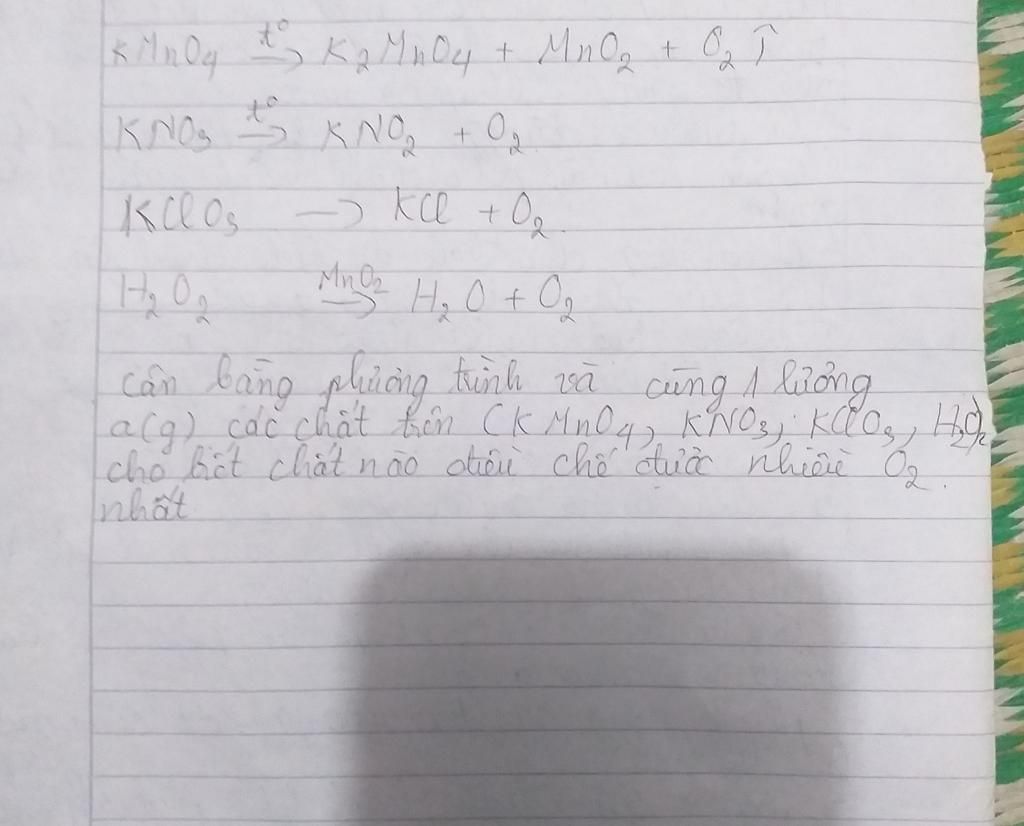 KMnO4 t° → K2MnO4 + MnO2 + O2 ↑
KNO3 t° → KNO2 + O2
KClO3 → KCl + O2
H2O2 MnO2 → H2O + O2
cân bằng phương trình và cùng 1 lượng
a(g) các chất trên (KMnO4, KNO3, KClO3, H2O2)
cho biết chất nào điều chế được nhiều O2.
nhất